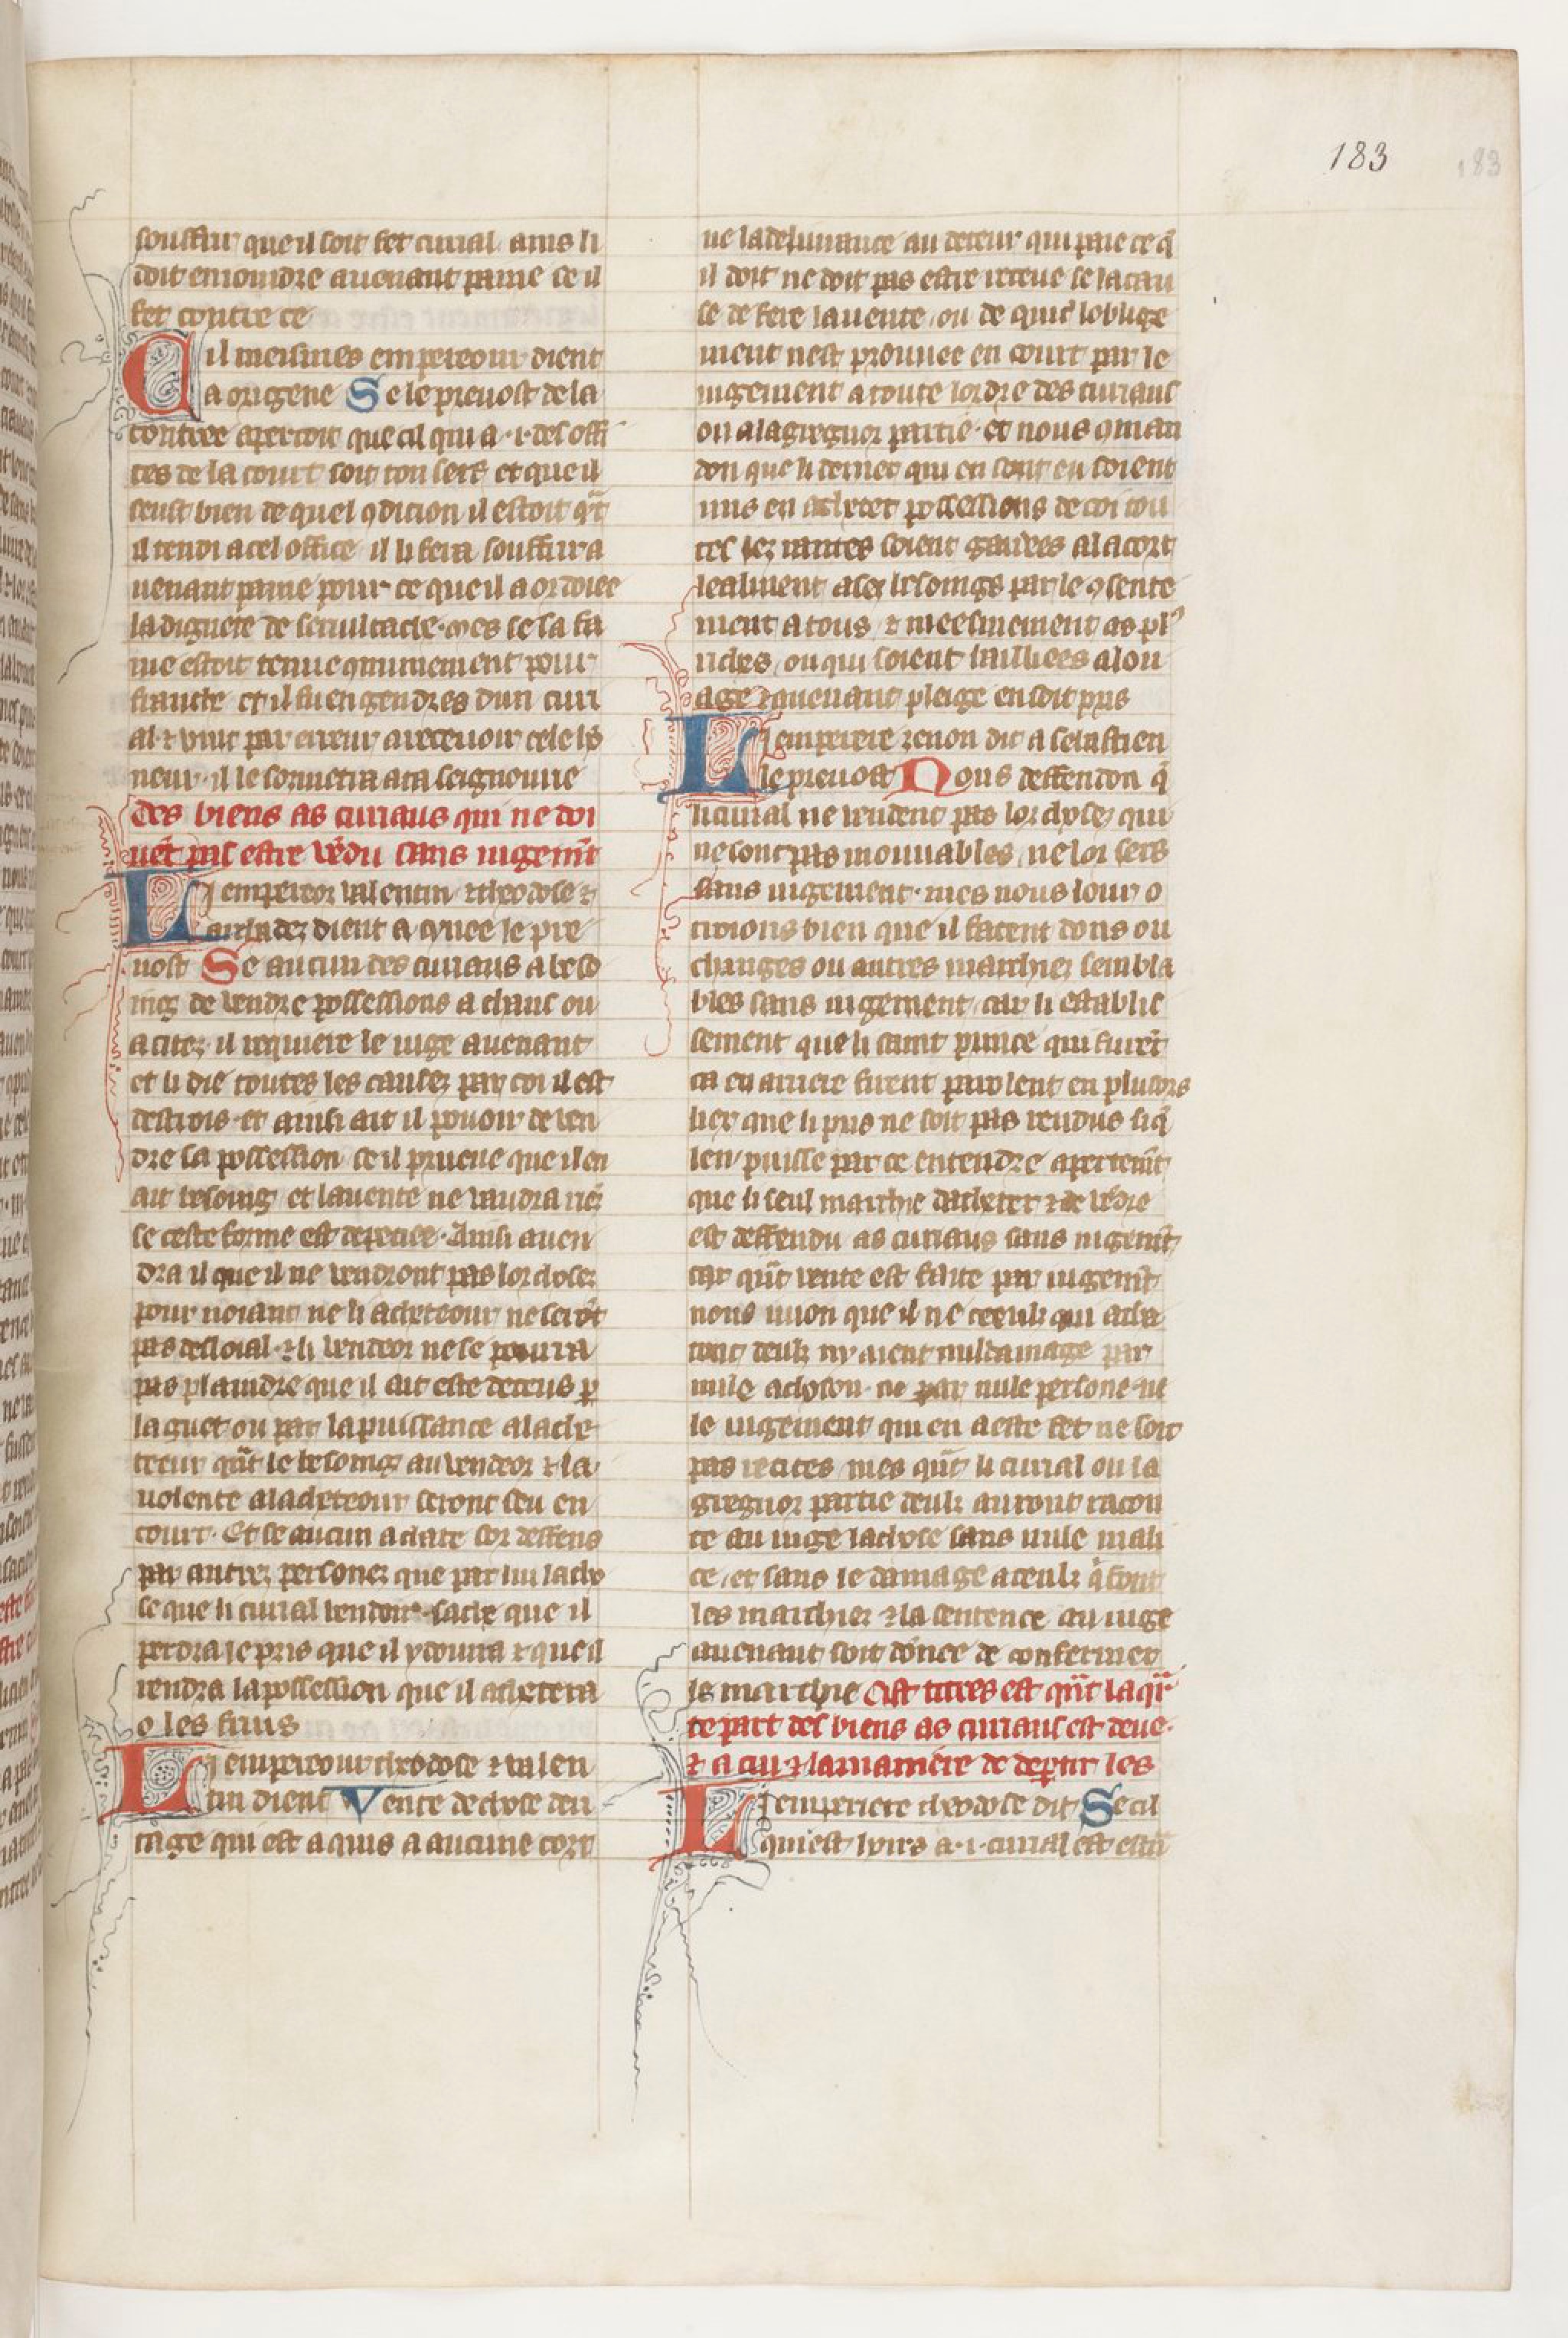 183
183
souffrir que il soit fet curial ains li
doit enioindre auenant paine se il
fet contre ce
Cil meismes empereour dient
a origene Se le preuost de la
contree apercoit que cil qui a .i. des offi
ces de la court soit ton sers et que il
seust bien de quel ꝯdicion il estoit qͣt
il tendi a cel office il li fera souffrir a
uenant paine pour ce que il a ordoiee
la dignete de
me estoit tenue ꝯmunement pour
franche et il fu engendres dun curi
al ⁊ vint par erreur a receuoir cele
neur il le sozmetra a ta seignourie
Des biens as curiaus qui ne doi
uēt pas estre vēdu sans iugemēt
Li empereor valentin ⁊ theodose ⁊
archadez dient a cynee le pre
uost Se aucun des curiaus a beso
ing de vendre possessions a chans ou
a citez il requiere le iuge auenant
et li die toutes les causez par coi il est
destrois et ainsi ait il pouoir de ven
dre sa possession se il prueue que il en
ait besoing et la uente ne vaudra riēs
se ceste forme est depeciee Ainsi auen
dra il que il ne vendront pas lor choses
pour noiant ne li acheteour ne serōt
pas desloial ⁊ li vendeor ne se pourra
pas plaindre que il ait este deceus ꝑ
laguet ou par la puissance a lache
teeur qͣt le besoing au vendeor ⁊ la
uolente a lacheteour seront seu en
court Et se aucun achate sor deffens
par autrez personez que par lui la cho
se que li curial vendoit sache que il
perdra le pris que il y donra ⁊ que il
rendra la possession que il achetera
o les fruis
Li empereour theodose ⁊ valen
tin dient Vente de chose deri
tage qui est a quis a aucune cort
ne la deliurance au deteur qui paie ce q̄
il doit ne doit pas estre receue se la cau
se de fere la uente ou de quit loblige
ment nest prouuee en court par le
iugement a toute lordre des curiaus
ou a la gregnor partie et nous ꝯman
don que li denier qui en sont eu soient
mis en acheter possessions de coi tou
tes lez rantes soient gardees a la cort
lealment a ses besoings par le ꝯsente
ment a tous ⁊ meesmement as plꝰ
riches ou qui soient bailliees a lou
age ⁊ auenant pleige en soit pris
Li emperere zenon dit a sebastien
le preuost Nous deffendon q̄
li curial ne vendent pas lor chosez qui
ne sont pas mouuables ne lor sers
sans iugement mes nous lour o
troions bien que il facent dons ou
changes ou autres marchiez sembla
bles sans iugement car li establis
sement que li saint prince qui furēt
ca en arriere firent parolent en plusors
liex que li pris ne soit pas rendus si q̄
len puisse par ce entendre apertemēt
que li seul marchie dacheter ⁊ de vēdre
est deffendu as curiaus sans iugemēt
car qͣt vente est faite par iugemēt
nous uuion que il ne ceeulz qui acha
tent deulz ny aient nul damage par
nule achoson ne par nule persone ne
le iugement qui en a este fet ne soit
pas recites mes qͣt li curial ou la
gregnor partie deulz auront racon
te au iuge la chose sans nule mali
ce et sans le damage a ceulz q̄ font
les marchiez ⁊ la sentence au iuge
auenant soit donee de confermer
le marchie Cist titres est qͣt la qͣr
te part des biens as curiaus est deue
⁊ a cui ⁊ la maniere de deꝑtir les
Li emperiere theodose dit Se cil
qui est hoirs a .i. curial est estrā